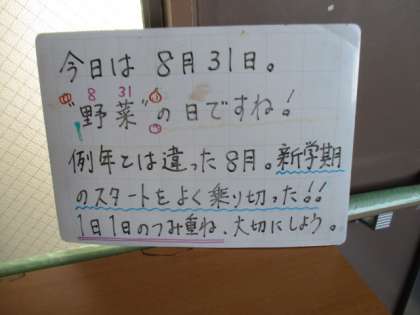 今日は 8月31日。
8 31
"野菜"の日ですね!
例年とは違った8月。新学期
のスタートをよく乗り切った!!
1日1日のつみ重ね、大切にしよう。